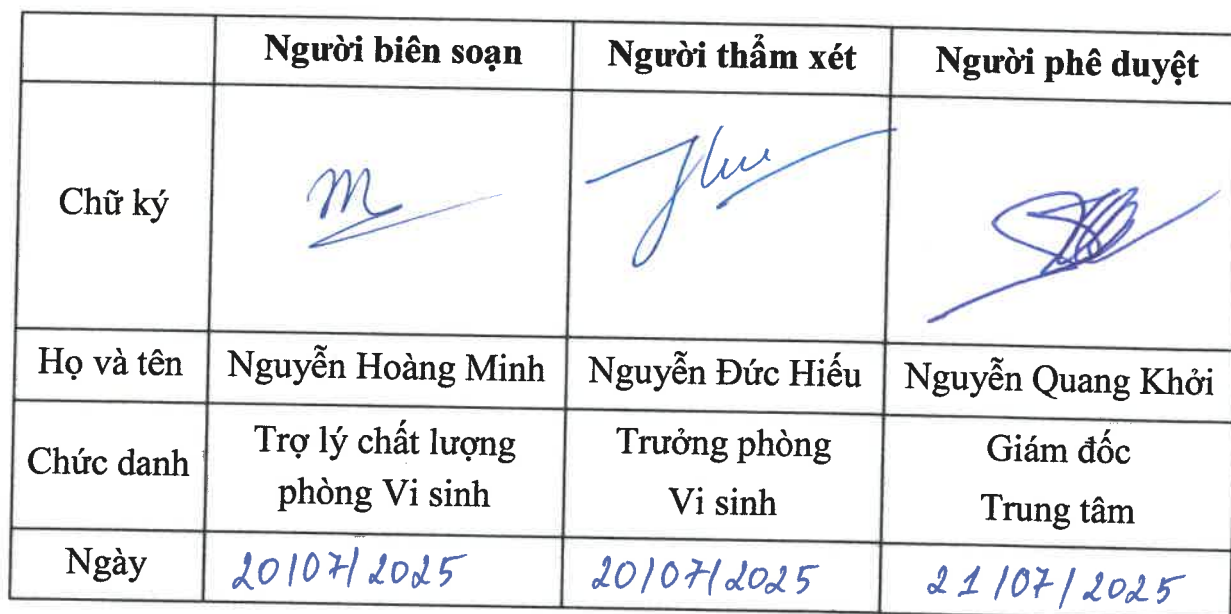 Người biên soạn Người thẩm xét Người phê duyệt
Chữ ký
Họ và tên Nguyễn Hoàng Minh Nguyễn Đức Hiếu Nguyễn Quang Khởi
Chức danh Trợ lý chất lượng phòng Vi sinh Trưởng phòng Vi sinh Giám đốc Trung tâm
Ngày 20/07/2025 20/07/2025 21/07/2025